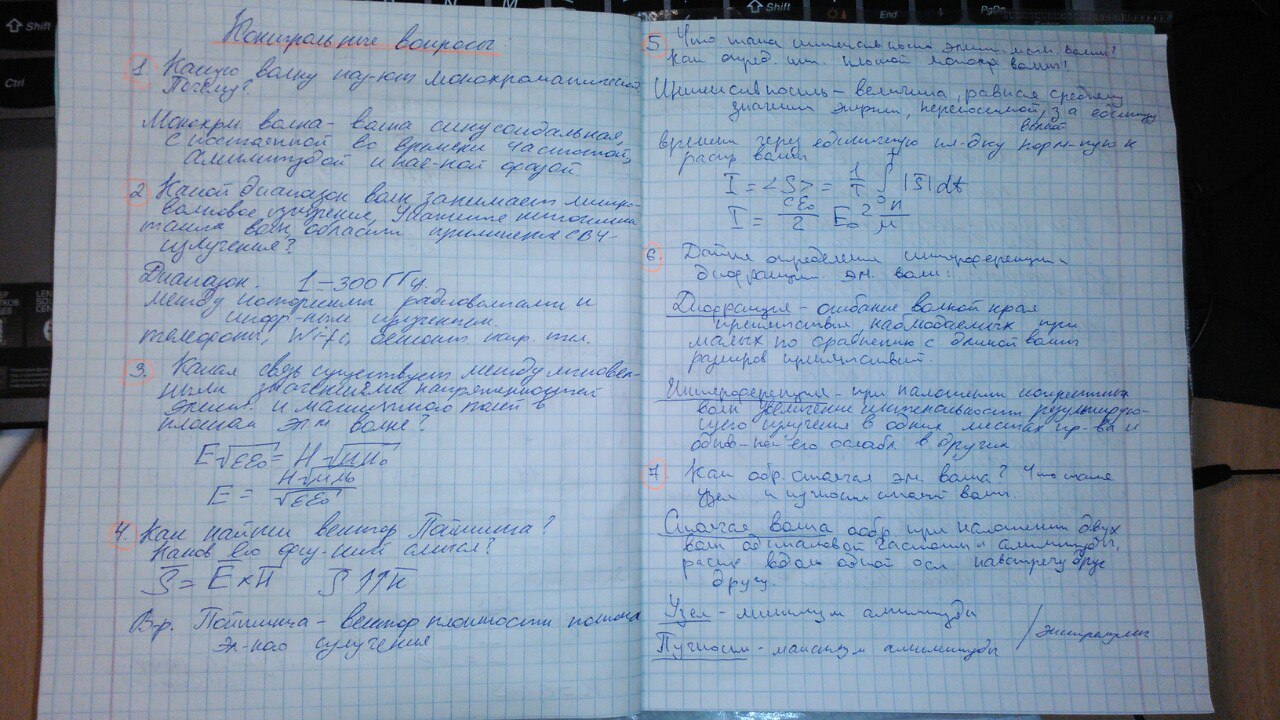 Контрольные вопросы.
1. Какую волну наз-ют монохроматической
Почему?
Монохр. волна - волна синусоидальная,
с постоянной во времени частотой,
амплитудой и нач-ной фазой
2. Какой диапазон волн занимает микро-
волновое излучение, Укажите источники
таких волн, области применения СВЧ-
излучения?
Диапазон: 1-300 ГГц.
между которыми радиоволнами и
инфр-ным излучением.
телефоны, Wi-fi,
3. Какая связь существует между мгновен-
ными значениями напряженностей
и магнитного полей в
плоской эл м волне?
E√εε₀ = H√μμ₀
E = H√μμ₀ / √εε₀
4. Как найти вектор Пойтинга?
Каков его физ-кий смысл?
S = E × H S ↑↑ k
В-р. Пойтинга - вектор плотности потока
эл-ного излучения
5. Что такое интенсивность эл-маг. волны?
Как опред. инт. плоской монохр волны!
Интенсивность - величина, равная среднему
значению энергии, переносимой, за единицу
волной
времени через единичную пл-дку норм-ную к
распр волны
I = <S> = 1/T ∫ |S| dt
I = cε₀/2 E₀²
6. Дайте определения интерференции-
дифракции эм. волн!
Дифракция - огибание волной края
препятствия, наблюдаемых при
малых по сравнению с длиной волны
размеров препятствий.
Интерференция - при наложении когрентных
волн увеличение интенсивности результирую-
щего излучения в одних местах пр-ва и
его ослабл в других
7 Как обр. стоячая эм. волна? Что такое
узел и пучность стоячей волны.
Стоячая волна обр. при наложении двух
волн одинаковой частоты и амплитуды,
распр вдоль одной оси навстречу друг
другу.
Узел - минимум амплитуды
Пучность - максимум амплитуды
Ctrl
Shift
Shift
End
PgDn